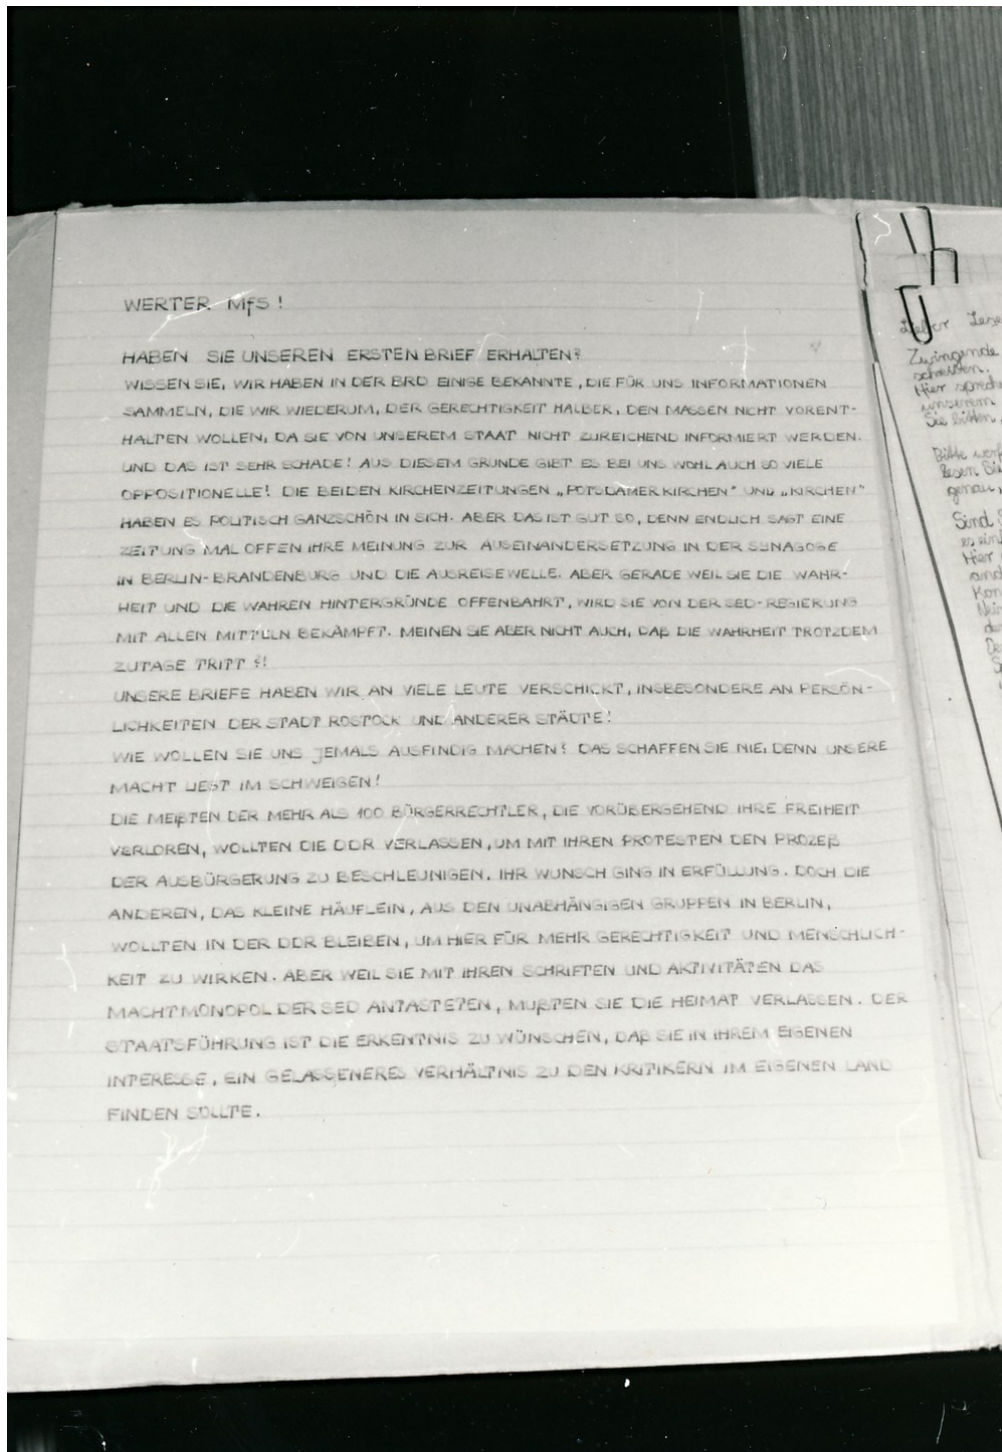 WERTER MfS!
HABEN SIE UNSEREN ERSTEN BRIEF ERHALTEN?
WISSEN SIE, WIR HABEN IN DER BRD EINIGE BEKANNTE, DIE FÜR UNS INFORMATIONEN
SAMMELN, DIE WIR WIEDERUM, DER GERECHTIGKEIT HALBER, DEN MASSEN NICHT VORENT-
HALTEN WOLLEN, DA SIE VON UNSEREM STAAT NICHT ZUREICHEND INFORMIERT WERDEN.
UND DAS IST SEHR SCHADE! AUS DIESEM GRUNDE GIBT ES BEI UNS WOHL AUCH SO VIELE
OPPOSITIONELLE! DIE BEIDEN KIRCHENZEITUNGEN „POTSDAMER KIRCHEN" UND „KIRCHEN"
HABEN ES POLITISCH GANZSCHÖN IN SICH. ABER DAS IST GUT SO, DENN ENDLICH SAGT EINE
ZEITUNG MAL OFFEN IHRE MEINUNG ZUR AUSEINANDERSETZUNG IN DER SYNAGOGE
IN BERLIN-BRANDENBURG UND DIE AUSREISEWELLE. ABER GERADE WEIL SIE DIE WAHR-
HEIT UND DIE WAHREN HINTERGRÜNDE OFFENBAHRT, WIRD SIE VON DER SED-REGIERUNG
MIT ALLEN MITTELN BEKÄMPFT. MEINEN SIE ABER NICHT AUCH, DAß DIE WAHRHEIT TROTZDEM
ZUTAGE TRITT ?!
UNSERE BRIEFE HABEN WIR AN VIELE LEUTE VERSCHICKT, INSBESONDERE AN PERSÖN-
LICHKEITEN DER STADT ROSTOCK UND ANDERER STÄDTE!
WIE WOLLEN SIE UNS JEMALS AUSFINDIG MACHEN? DAS SCHAFFEN SIE NIE, DENN UNSERE
MACHT LIEGT IM SCHWEIGEN!
DIE MEIßTEN DER MEHR ALS 100 BÜRGERRECHTLER, DIE VORÜBERGEHEND IHRE FREIHEIT
VERLOREN, WOLLTEN DIE DDR VERLASSEN, UM MIT IHREN PROTESTEN DEN PROZEß
DER AUSBÜRGERUNG ZU BESCHLEUNIGEN. IHR WUNSCH GING IN ERFÜLLUNG. DOCH DIE
ANDEREN, DAS KLEINE HÄUFLEIN, AUS DEN UNABHÄNGIGEN GRUPPEN IN BERLIN,
WOLLTEN IN DER DDR BLEIBEN, UM HIER FÜR MEHR GERECHTIGKEIT UND MENSCHLICH-
KEIT ZU WIRKEN. ABER WEIL SIE MIT IHREN SCHRIFTEN UND AKTIVITÄTEN DAS
MACHTMONOPOL DER SED ANTASTETEN, MUßTEN SIE DIE HEIMAT VERLASSEN. DER
STAATSFÜHRUNG IST DIE ERKENTNIS ZU WÜNSCHEN, DAß SIE IN IHREM EIGENEN
INTERESSE, EIN GELASSENERES VERHÄLTNIS ZU DEN KRITIKERN IM EIGENEN LAND
FINDEN SOLLTE.
Lieber Lese
Zwingende
schreiben.
Hier spreche
unserem
Sie bitten,
Bitte
lesen Sie
genau,
Sind
Hier